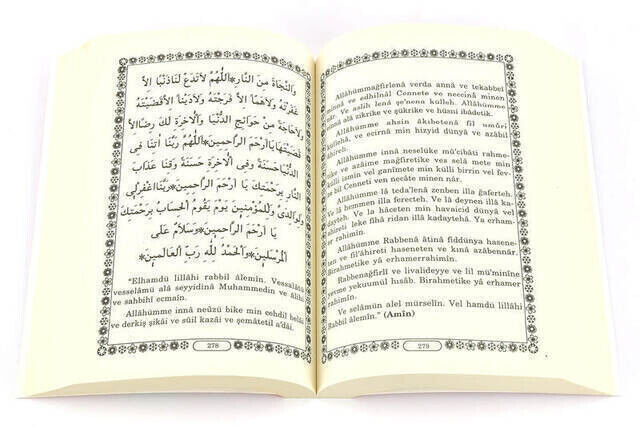 وَالنَّجَاةَ مِنَ النَّارِ*اَللّٰهُمَّ لَاتَدَعْ لَنَاذَنْبًا اِلَّا
غَفَرْتَهُ وَلَاهَمًّا اِلَّا فَرَّجْتَهُ وَلَادَيْنًا اِلَّاقَضَيْتَهُ
وَلَاحَاجَةً مِنْ حَوَائِجِ الدُّنْيَا وَالْاٰخِرَةِ هِىَ لَكَ رِضًااِلَّا
قَضَيْتَهَايَااَرْحَمَ الرَّاحِمِينَ*اَللّٰهُمَّ رَبَّنَا اٰتِنَا فِى
الدُّنْيَاحَسَنَةً وَفِى الْاٰخِرَةِ حَسَنَةً وَقِنَا عَذَابَ
النَّارِ بِرَحْمَتِكَ يَا اَرْحَمَ الرَّاحِمِينَ*رَبَّنَااغْفِرْلِى
وَلِوَالِدَىَّ وَلِلْمُؤْمِنِينَ يَوْمَ يَقُومُ الْحِسَابُ بِرَحْمَتِكَ
يَا اَرْحَمَ الرَّاحِمِينَ*وَسَلَامٌ عَلَى
الْمُرْسَلِينَ*وَالْحَمْدُ لِلّٰهِ رَبِّ الْعَالَمِينَ*
"Elhamdü lillâhi rabbil âlemîn. Vessalâtü
vesselâmü alâ seyyidinâ Muhammedin ve âlihî
ve sahbihî ecmaîn.
Allâhümme innâ neûzü bike min cehdil belâi
ve derkiş şikâi ve sûil kazâi ve şemâtetil a'dâi.
278
Allâhümmağfirlenâ verda annâ ve tekabbel
minnâ ve edhilnâl Cennete ve neccinâ minen
nâr. Ve aslih lenâ şe'nenâ külleh. Allâhümme
einnâ alâ zikrike ve şükrike ve hüsni ibâdetik.
Allâhümme ahsin âkıbetenâ fil umûri
küllihâ, ve ecirnâ min hizyid dünyâ ve azâbil
âhireh.
Allâhümme innâ neselüke mü'cibâti rahme-
tike ve azâime mağfiretike ves selâ mete min
külli ismin vel ganîmete min külli birrin vel fev-
ze bil Cenneti ven necâte minen nâr.
Allâhümme lâ teda'lenâ zenben illa ğaferteh.
Ve lâ hemmen illa ferecteh. Ve lâ deynen illâ ka-
dayteh. Ve la hâceten min havaicid dünyâ vel
âhireti leke fîhâ ridan illâ kadayteha. Yâ erham-
er râhimîn.
Allâhümme Rabbenâ âtinâ fiddünya hasene-
ten ve fil'âhireti haseneten ve kınâ azâbennâr.
Birahmetike yâ erhamerrahimîn.
Rabbenâğfirlî ve livalideyye ve lil mü'minîne
yevme yekuumül hısâb. Birahmetike yâ erhamer
rahimîn.
Ve selâmün alel mürselîn. Vel hamdu lillâhi
Rabbil âlemîn." (Amîn)
279